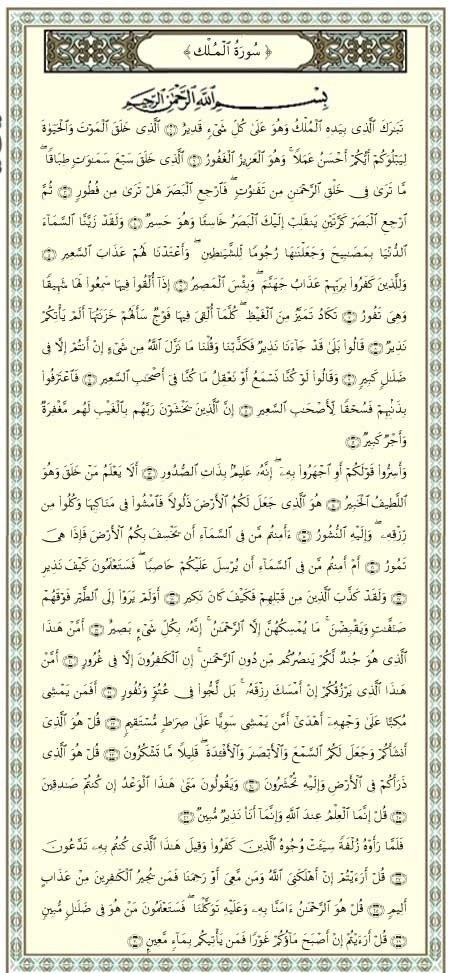 ﴿ سُورَةُ ٱلْمُلْك ﴾
بِسْمِ ٱللَّهِ ٱلرَّحْمَٰنِ ٱلرَّحِيمِ
تَبَٰرَكَ ٱلَّذِى بِيَدِهِ ٱلْمُلْكُ وَهُوَ عَلَىٰ كُلِّ شَىْءٍ قَدِيرٌ ۝ ٱلَّذِى خَلَقَ ٱلْمَوْتَ وَٱلْحَيَوٰةَ
لِيَبْلُوَكُمْ أَيُّكُمْ أَحْسَنُ عَمَلًا ۚ وَهُوَ ٱلْعَزِيزُ ٱلْغَفُورُ ۝ ٱلَّذِى خَلَقَ سَبْعَ سَمَٰوَٰتٍ طِبَاقًا ۖ
مَّا تَرَىٰ فِى خَلْقِ ٱلرَّحْمَٰنِ مِن تَفَٰوُتٍ ۖ فَٱرْجِعِ ٱلْبَصَرَ هَلْ تَرَىٰ مِن فُطُورٍ ۝ ثُمَّ
ٱرْجِعِ ٱلْبَصَرَ كَرَّتَيْنِ يَنقَلِبْ إِلَيْكَ ٱلْبَصَرُ خَاسِئًا وَهُوَ حَسِيرٌ ۝ وَلَقَدْ زَيَّنَّا ٱلسَّمَآءَ
ٱلدُّنْيَا بِمَصَٰبِيحَ وَجَعَلْنَٰهَا رُجُومًا لِّلشَّيَٰطِينِ ۖ وَأَعْتَدْنَا لَهُمْ عَذَابَ ٱلسَّعِيرِ ۝
وَلِلَّذِينَ كَفَرُوا۟ بِرَبِّهِمْ عَذَابُ جَهَنَّمَ ۖ وَبِئْسَ ٱلْمَصِيرُ ۝ إِذَآ أُلْقُوا۟ فِيهَا سَمِعُوا۟ لَهَا شَهِيقًا
وَهِىَ تَفُورُ ۝ تَكَادُ تَمَيَّزُ مِنَ ٱلْغَيْظِ ۖ كُلَّمَآ أُلْقِىَ فِيهَا فَوْجٌ سَأَلَهُمْ خَزَنَتُهَآ أَلَمْ يَأْتِكُمْ
نَذِيرٌ ۝ قَالُوا۟ بَلَىٰ قَدْ جَآءَنَا نَذِيرٌ فَكَذَّبْنَا وَقُلْنَا مَا نَزَّلَ ٱللَّهُ مِن شَىْءٍ إِنْ أَنتُمْ إِلَّا فِى
ضَلَٰلٍ كَبِيرٍ ۝ وَقَالُوا۟ لَوْ كُنَّا نَسْمَعُ أَوْ نَعْقِلُ مَا كُنَّا فِىٓ أَصْحَٰبِ ٱلسَّعِيرِ ۝ فَٱعْتَرَفُوا۟
بِذَنۢبِهِمْ فَسُحْقًا لِّأَصْحَٰبِ ٱلسَّعِيرِ ۝ إِنَّ ٱلَّذِينَ يَخْشَوْنَ رَبَّهُم بِٱلْغَيْبِ لَهُم مَّغْفِرَةٌ
وَأَجْرٌ كَبِيرٌ ۝
وَأَسِرُّوا۟ قَوْلَكُمْ أَوِ ٱجْهَرُوا۟ بِهِۦٓ ۖ إِنَّهُۥ عَلِيمٌۢ بِذَاتِ ٱلصُّدُورِ ۝ أَلَا يَعْلَمُ مَنْ خَلَقَ وَهُوَ
ٱللَّطِيفُ ٱلْخَبِيرُ ۝ هُوَ ٱلَّذِى جَعَلَ لَكُمُ ٱلْأَرْضَ ذَلُولًا فَٱمْشُوا۟ فِى مَنَاكِبِهَا وَكُلُوا۟ مِن
رِّزْقِهِۦ ۖ وَإِلَيْهِ ٱلنُّشُورُ ۝ ءَأَمِنتُم مَّن فِى ٱلسَّمَآءِ أَن يَخْسِفَ بِكُمُ ٱلْأَرْضَ فَإِذَا هِىَ
تَمُورُ ۝ أَمْ أَمِنتُم مَّن فِى ٱلسَّمَآءِ أَن يُرْسِلَ عَلَيْكُمْ حَاصِبًا ۖ فَسَتَعْلَمُونَ كَيْفَ نَذِيرِ
۝ وَلَقَدْ كَذَّبَ ٱلَّذِينَ مِن قَبْلِهِمْ فَكَيْفَ كَانَ نَكِيرِ ۝ أَوَلَمْ يَرَوْا۟ إِلَى ٱلطَّيْرِ فَوْقَهُمْ
صَٰٓفَّٰتٍ وَيَقْبِضْنَ ۚ مَا يُمْسِكُهُنَّ إِلَّا ٱلرَّحْمَٰنُ ۚ إِنَّهُۥ بِكُلِّ شَىْءٍۭ بَصِيرٌ ۝ أَمَّنْ هَٰذَا
ٱلَّذِى هُوَ جُندٌ لَّكُمْ يَنصُرُكُم مِّن دُونِ ٱلرَّحْمَٰنِ ۚ إِنِ ٱلْكَٰفِرُونَ إِلَّا فِى غُرُورٍ ۝ أَمَّنْ
هَٰذَا ٱلَّذِى يَرْزُقُكُمْ إِنْ أَمْسَكَ رِزْقَهُۥ ۚ بَل لَّجُّوا۟ فِى عُتُوٍّ وَنُفُورٍ ۝ أَفَمَن يَمْشِى
مُكِبًّا عَلَىٰ وَجْهِهِۦٓ أَهْدَىٰٓ أَمَّن يَمْشِى سَوِيًّا عَلَىٰ صِرَٰطٍ مُّسْتَقِيمٍ ۝ قُلْ هُوَ ٱلَّذِىٓ
أَنشَأَكُمْ وَجَعَلَ لَكُمُ ٱلسَّمْعَ وَٱلْأَبْصَٰرَ وَٱلْأَفْـِٔدَةَ ۖ قَلِيلًا مَّا تَشْكُرُونَ ۝ قُلْ هُوَ ٱلَّذِى
ذَرَأَكُمْ فِى ٱلْأَرْضِ وَإِلَيْهِ تُحْشَرُونَ ۝ وَيَقُولُونَ مَتَىٰ هَٰذَا ٱلْوَعْدُ إِن كُنتُمْ صَٰدِقِينَ
۝ قُلْ إِنَّمَا ٱلْعِلْمُ عِندَ ٱللَّهِ وَإِنَّمَآ أَنَا۠ نَذِيرٌ مُّبِينٌ ۝
فَلَمَّا رَأَوْهُ زُلْفَةً سِيٓـَٔتْ وُجُوهُ ٱلَّذِينَ كَفَرُوا۟ وَقِيلَ هَٰذَا ٱلَّذِى كُنتُم بِهِۦ تَدَّعُونَ
۝ قُلْ أَرَءَيْتُمْ إِنْ أَهْلَكَنِىَ ٱللَّهُ وَمَن مَّعِىَ أَوْ رَحِمَنَا فَمَن يُجِيرُ ٱلْكَٰفِرِينَ مِنْ عَذَابٍ
أَلِيمٍ ۝ قُلْ هُوَ ٱلرَّحْمَٰنُ ءَامَنَّا بِهِۦ وَعَلَيْهِ تَوَكَّلْنَا ۖ فَسَتَعْلَمُونَ مَنْ هُوَ فِى ضَلَٰلٍ مُّبِينٍ
۝ قُلْ أَرَءَيْتُمْ إِنْ أَصْبَحَ مَآؤُكُمْ غَوْرًا فَمَن يَأْتِيكُم بِمَآءٍ مَّعِينٍۭ ۝